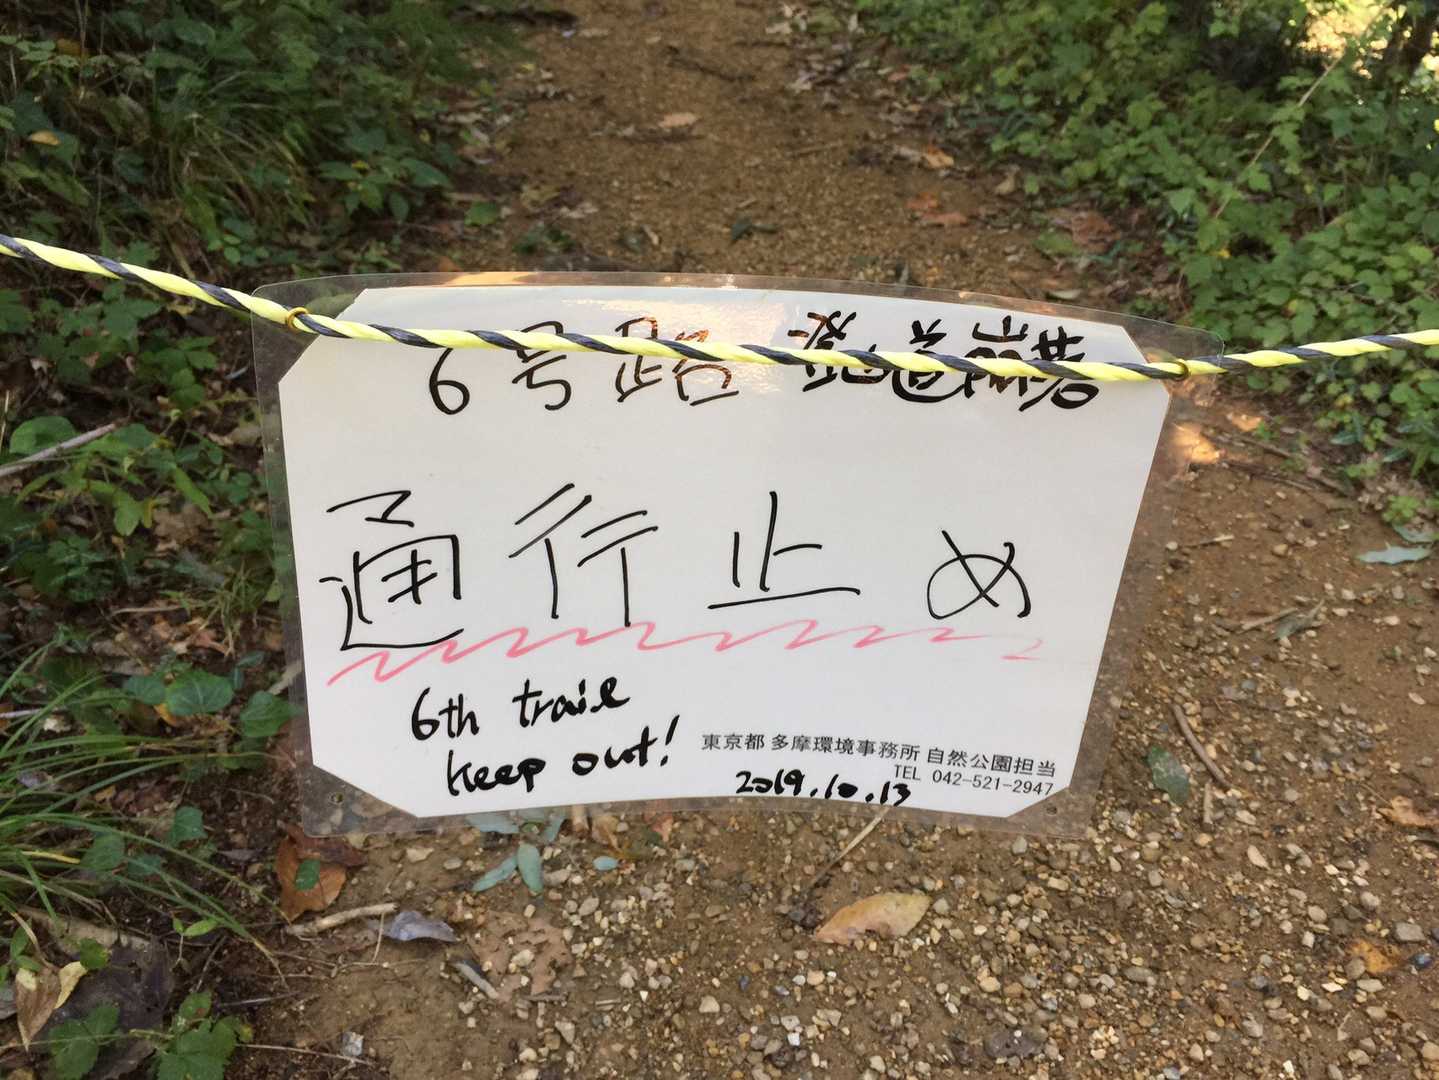 6号路 登山道崩落
通行止め
6th trail
keep out!
東京都 多摩環境事務所 自然公園担当
TEL 042-521-2947
2019.10.13